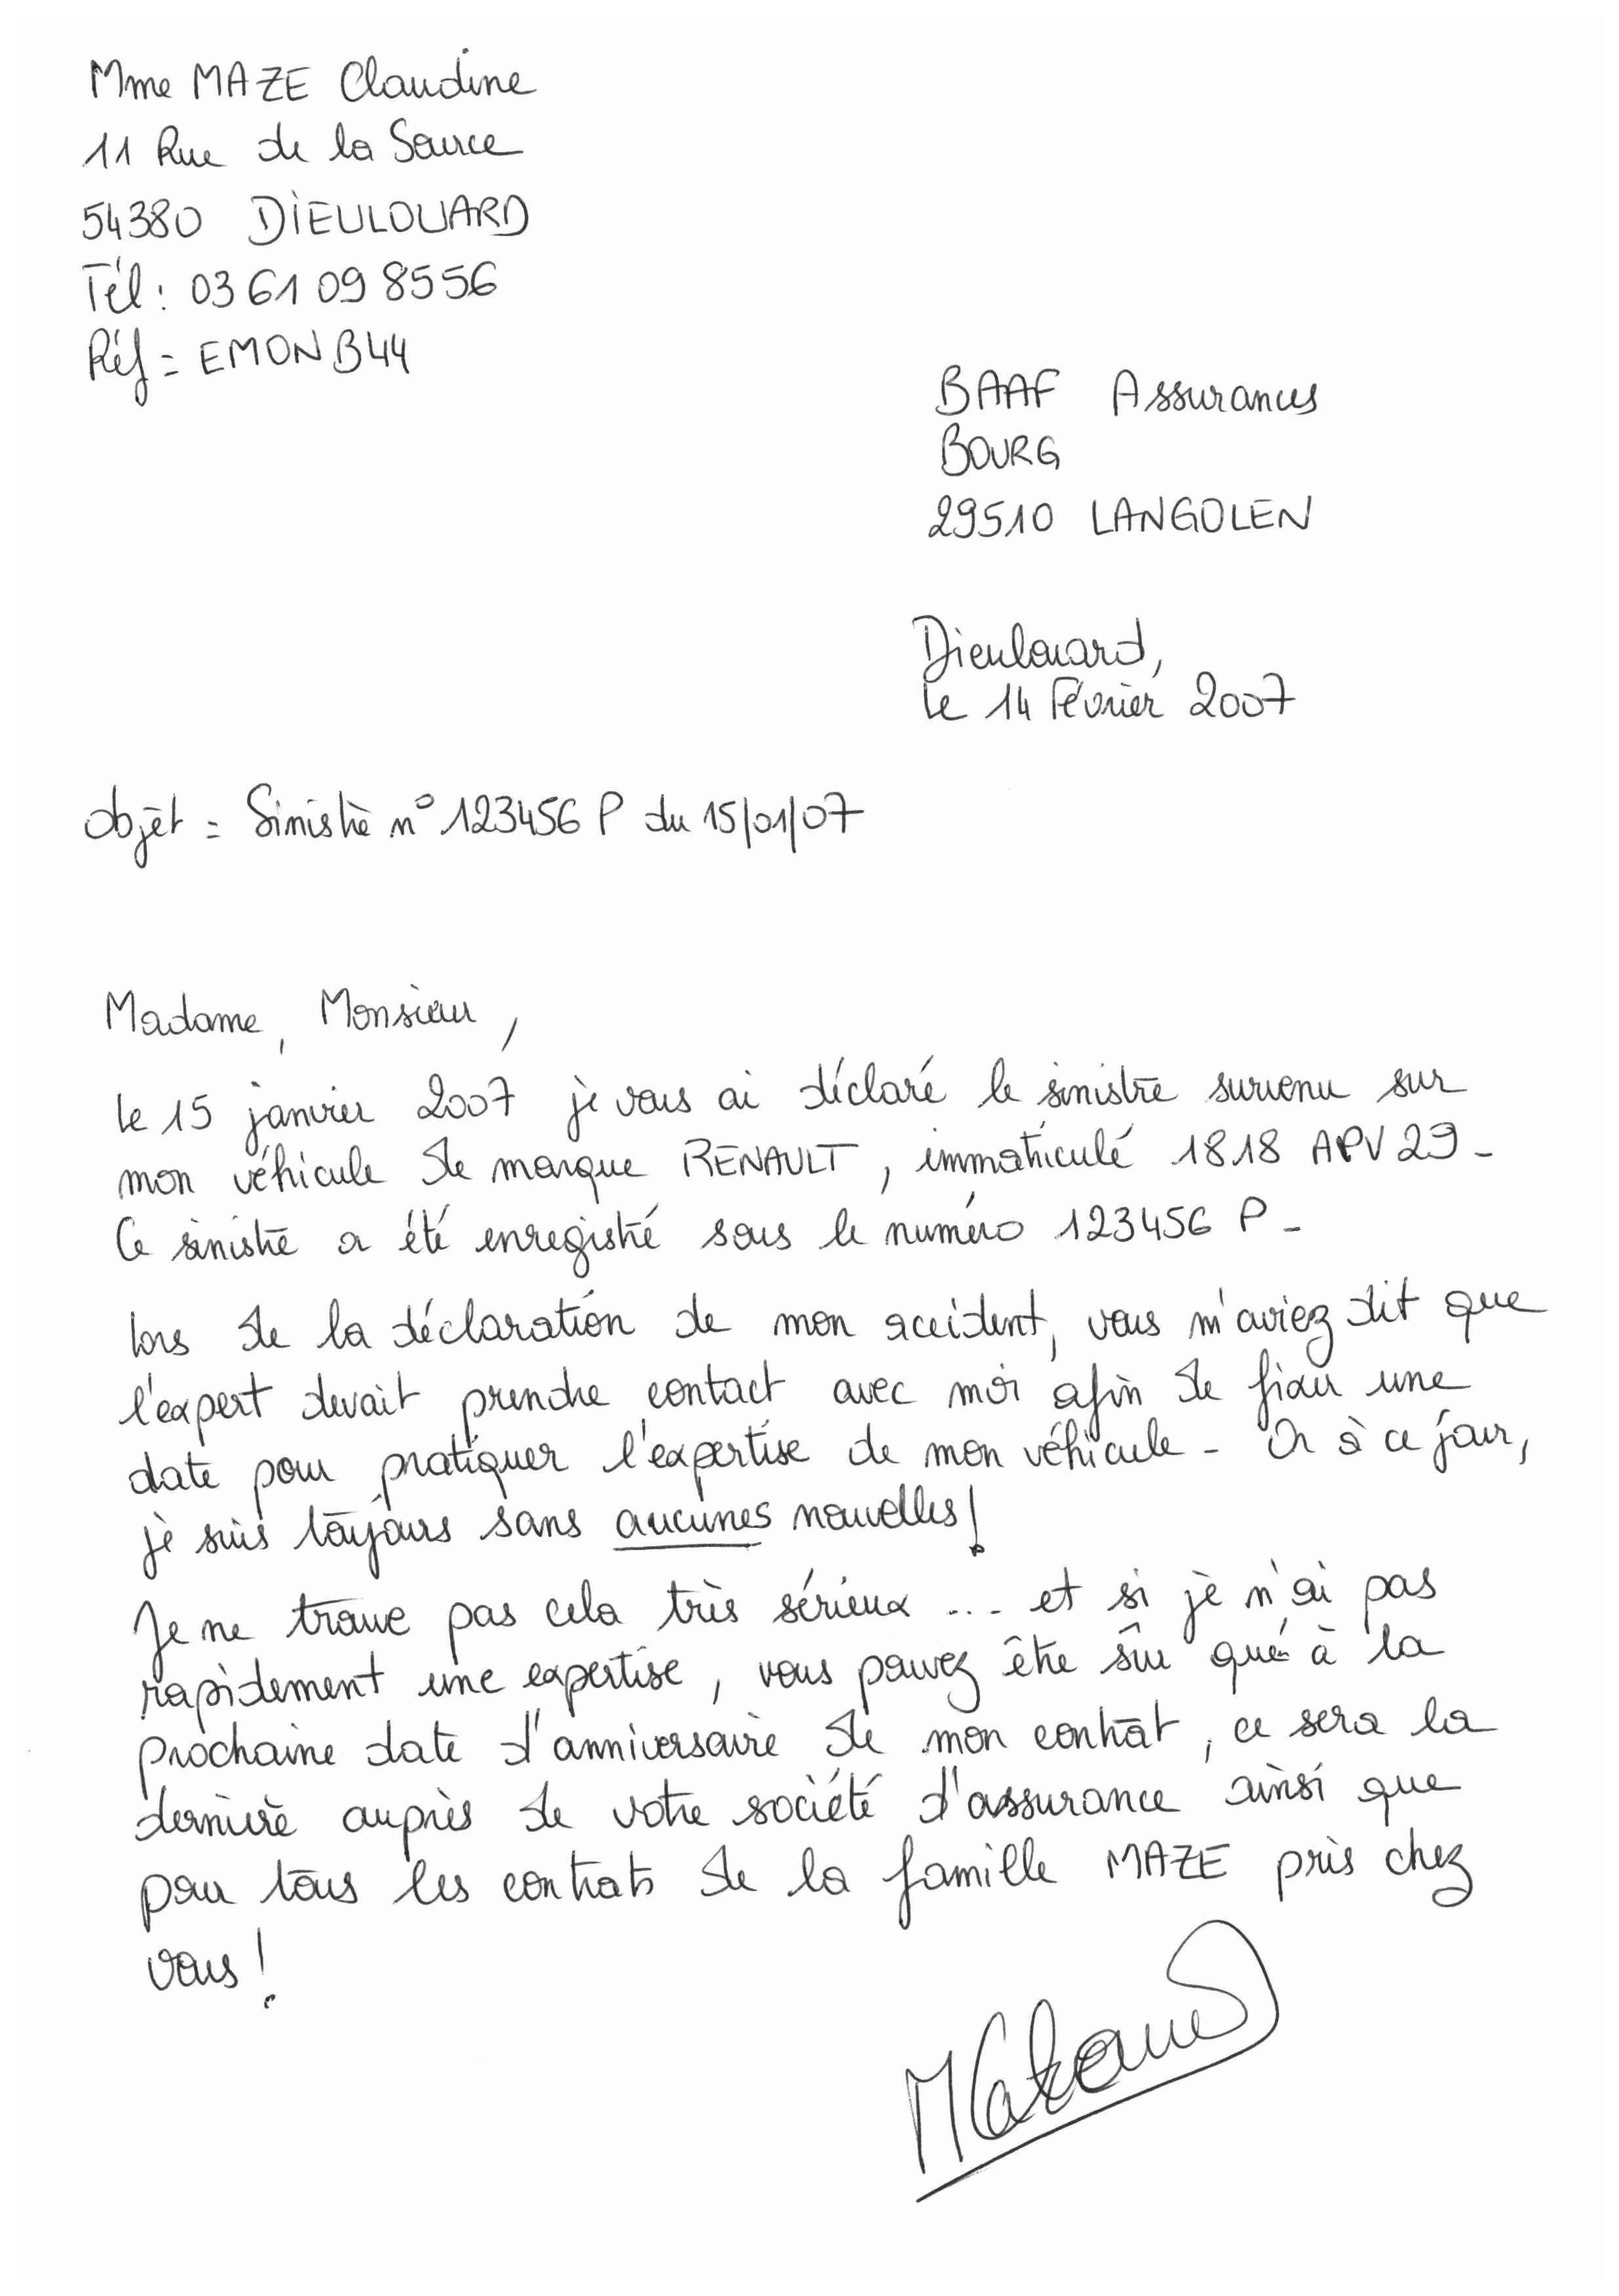 Mme MAZE Claudine
11 Rue de la Source
54380 DIEULOUARD
Tél : 03 61 09 8556
Réf = EMONB44
BAAF Assurances
BOURG
29510 LANGOLEN
Dieulouard,
Le 14 Février 2007
Objet = Sinistre n° 123456 P du 15/01/07
Madame, Monsieur,
Le 15 janvier 2007 je vous ai déclaré le sinistre survenu sur
mon véhicule de marque RENAULT, immatriculé 1818 APV 29-
Ce sinistre a été enregistré sous le numéro 123456 P-
Lors de la déclaration de mon accident, vous m'aviez dit que
l'expert devait prendre contact avec moi afin de fixer une
date pour pratiquer l'expertise de mon véhicule- Or à ce jour,
je suis toujours sans aucunes nouvelles!
Je ne trouve pas cela très sérieux ... et si je n'ai pas
rapidement une expertise, vous pouvez être sûr que à la
prochaine date d'anniversaire de mon contrat, ce sera la
dernière auprès de votre société d'assurance ainsi que
pour tous les contrats de la famille MAZE pris chez
vous!